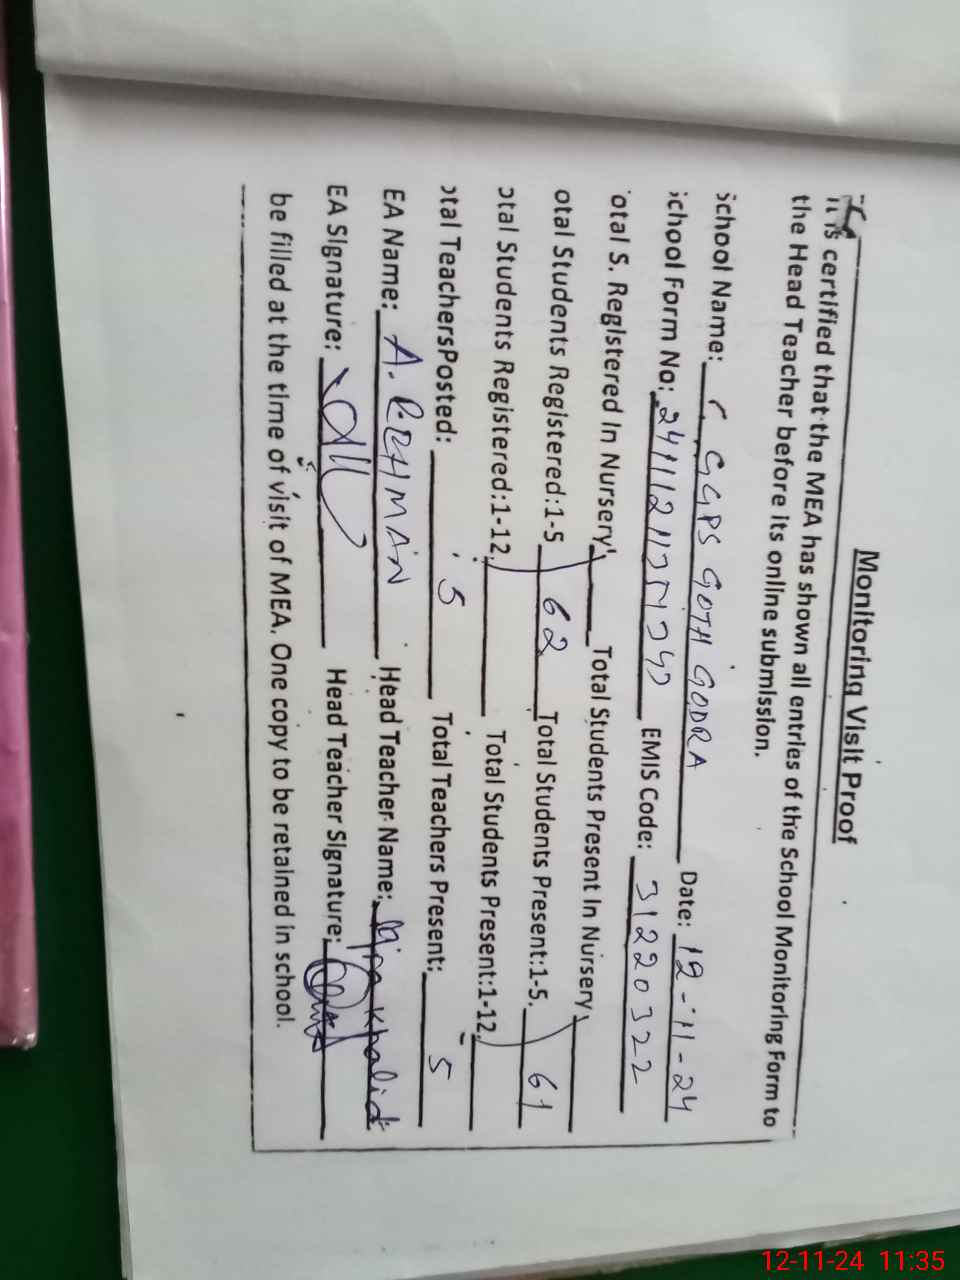 Monitoring Visit Proof
It is certified that the MEA has shown all entries of the School Monitoring Form to
the Head Teacher before its online submission.
School Name: GGPS GOTH GODRA Date: 12-11-24
School Form No: EMIS Code: 31220322
otal S. Registered In Nursery Total Students Present In Nursery
otal Students Registered:1-5 62 Total Students Present:1-5. 61
otal Students Registered:1-12. Total Students Present:1-12.
otal TeachersPosted: 5 Total Teachers Present: 5
EA Name: A. REHMAN Head Teacher Name: khalid
EA Signature: Head Teacher Signature:
be filled at the time of visit of MEA. One copy to be retained in school.
12-11-24 11:35